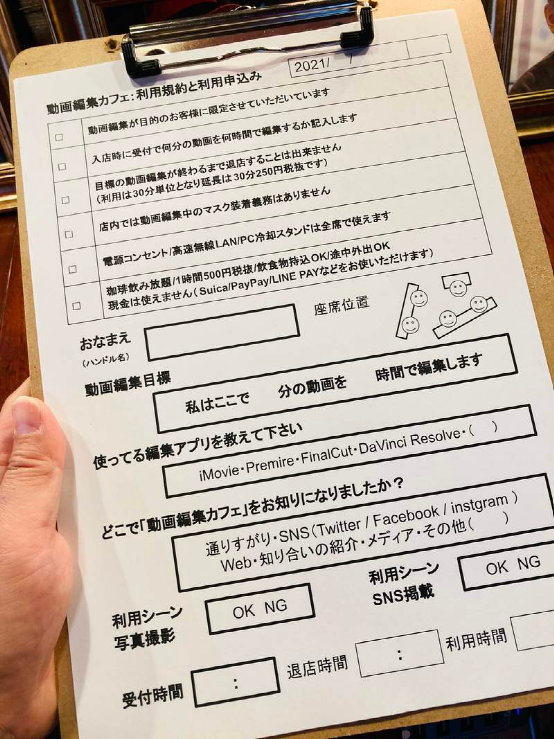 動画編集カフェ：利用規約と利用申込み
2021/ /
□ 動画編集が目的のお客様に限定させていただいています
□ 入店時に受付で何分の動画を何時間で編集するか記入します
□ 目標の動画編集が終わるまで退店することは出来ません
(利用は30分単位となり延長は30分250円税抜です)
□ 店内では動画編集中のマスク装着義務はありません
□ 電源コンセント/高速無線LAN/PC冷却スタンドは全席で使えます
□ 珈琲飲み放題/1時間500円税抜/飲食物持込OK/途中外出OK
現金は使えません(Suica/PayPay/LINE PAYなどをお使いただけます)
おなまえ
(ハンドル名)
座席位置
動画編集目標
私はここで 分の動画を 時間で編集します
使ってる編集アプリを教えて下さい
iMovie・Premire・FinalCut・DaVinci Resolve・( )
どこで「動画編集カフェ」をお知りになりましたか？
通りすがり・SNS(Twitter / Facebook / instgram )
Web・知り合いの紹介・メディア・その他( )
利用シーン
写真撮影
OK NG
利用シーン
SNS掲載
OK NG
受付時間
:
退店時間
:
利用時間